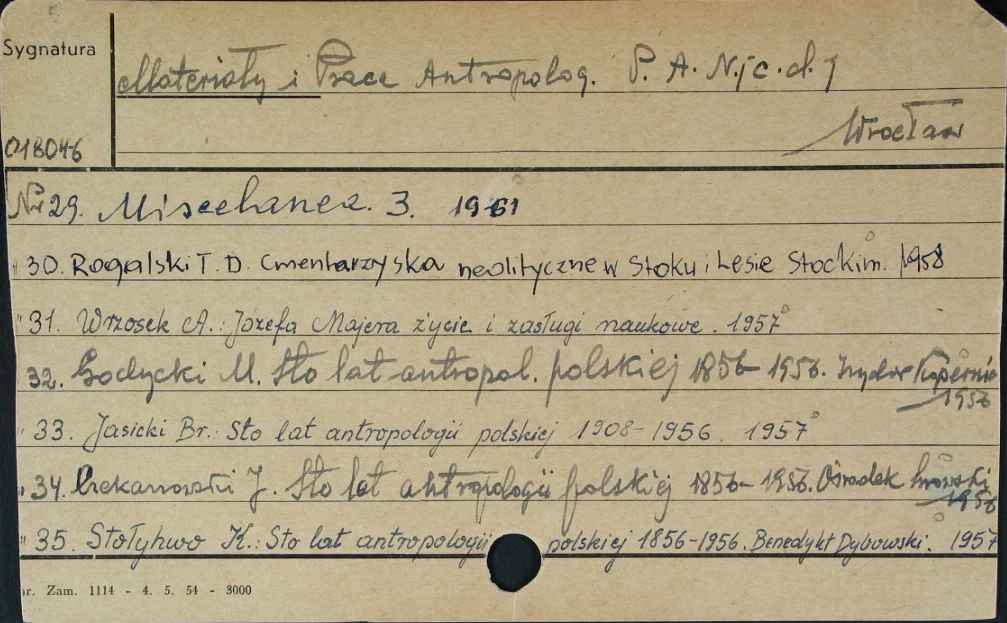 Sygnatura
Materiały i Prace Antropolog. P. A. N. [c. d.]
Wrocław
018046
Nr 29. Miscellanea. 3. 1961
" 30. Rogalski T. D. Cmentarzyska neolityczne w Stoku i Lesie Stockim. 1958
" 31. Wrzosek A.: Józefa Majera życie i zasługi naukowe. 1957
32. Godycki M. Sto lat antropol. polskiej 1856-1956. Izydor Kopernic
1956
" 33. Jasicki Br.: Sto lat antropologii polskiej 1908-1956. 1957
" 34. Czekanowski J. Sto lat antropologii polskiej 1856-1956. Ośrodek lwowski
1956
" 35. Stołyhwo K.: Sto lat antropologii polskiej 1856-1956. Benedykt Dybowski. 1957
r. Zam. 1114 - 4. 5. 54 - 3000